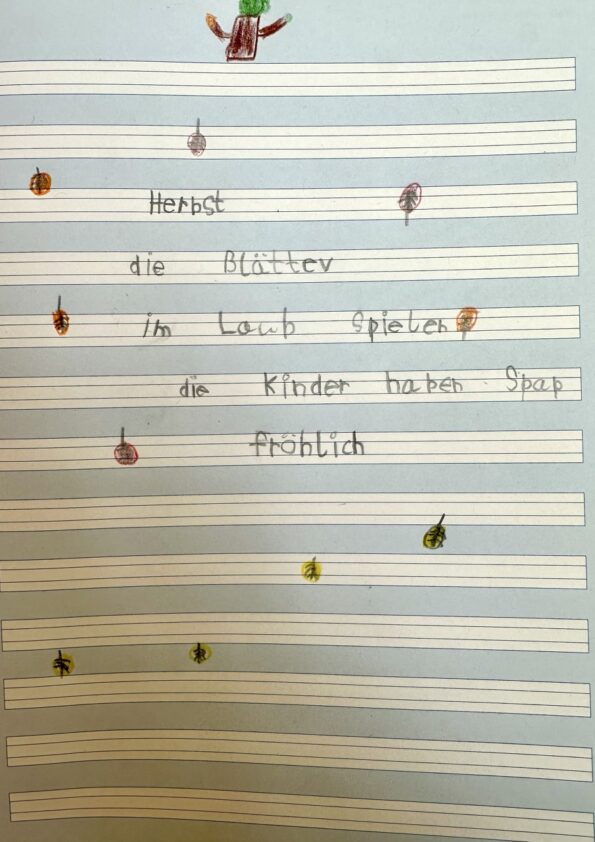 Herbst
die Blätter
im Laub Spielen
die Kinder haben Spaß
fröhlich